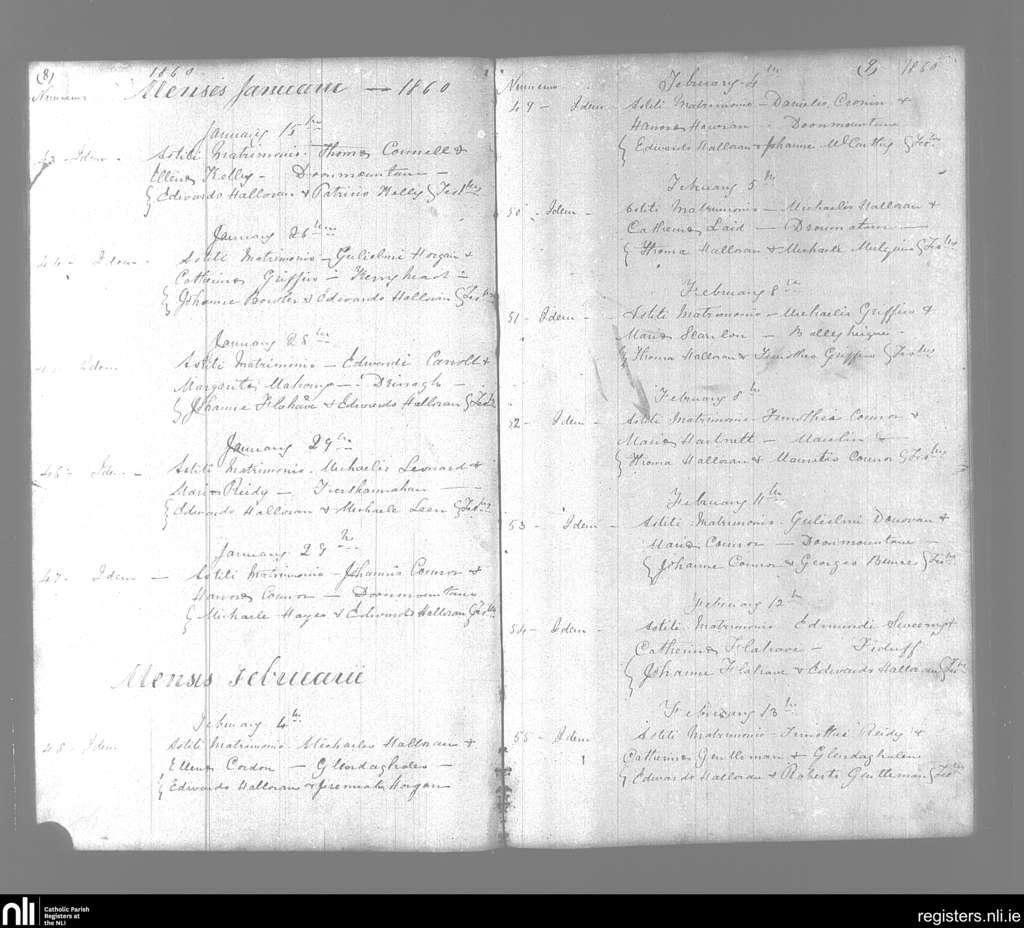 (8) 1860
Numerus Mensis Januarii — 1860
January 15th
Idem - Astiti Matrimonio - Thoma Connell &
Ellena Kelly - Doonmountain -
{Edwardo Halloran & Patricio Kelly {Testibus
January 26th
44 - Idem - Astiti Matrimonio - Gulielmi Horgan &
Catherina Griffin - Kerryhead -
{Johanne Bowler & Edwardo Halloran {Testibus
January 28th
Idem - Astiti Matrimonio - Edwardi Carroll &
Margarita Mahony - Drissagh -
{Johanne Flahave & Edwardo Halloran {Testibus
January 29th
Idem - Astiti Matrimonio - Michaelis Leonard &
Maria Reidy -
{Edwardo Halloran & Michaele Leen {Testibus
January 29th
47 - Idem - Astiti Matrimonio - Johannis Connor &
Hanora Connor - Doonmountain
{Michaele Hayes & Edwardo Halloran {Testibus
Mensis Februarii
February 4th
Idem Astiti Matrimonio Michaelis Halloran &
Ellena Condon -
{Edwardo Halloran & Jeremiah Horgan
(9) 1860
Numerus February 4th
49 - Idem - Astiti Matrimonio - Danielis Cronin &
Hanora - Doonmountain
{Edwardo Halloran & Johanne McCarthy {Testibus
February 5th
50 - Idem - Astiti Matrimonio - Michaelis Halloran &
Catherina Laid -
{Thoma Halloran & Michaele {Testibus
February 8th
51 - Idem - Astiti Matrimonio - Michaelis Griffin &
Maria Scanlon - Ballyheigue -
{Thoma Halloran & Timothea Griffin {Testibus
February 8th
52 - Idem - Astiti Matrimonio - Timothei Connor &
Maria Hartnett -
{Thoma Halloran & Mauritio Connor {Testibus
February 11th
53 - Idem - Astiti Matrimonio - Gulielmi Donovan &
Maria Connor - Doonmountain -
{Johanne Connor & Georgeo {Testibus
February 12th
54 - Idem - Astiti Matrimonio Edmundi Sweeny &
Catherina Flahave -
{Johanne Flahave & Edwardo Halloran {Testibus
February 13th
55 - Idem - Astiti Matrimonio - Timothei Reidy &
Catherina Gentleman -
{Edwardo Halloran & Roberto Gentleman {Testibus
nli Catholic Parish
Registers at
the NLI
registers.nli.ie